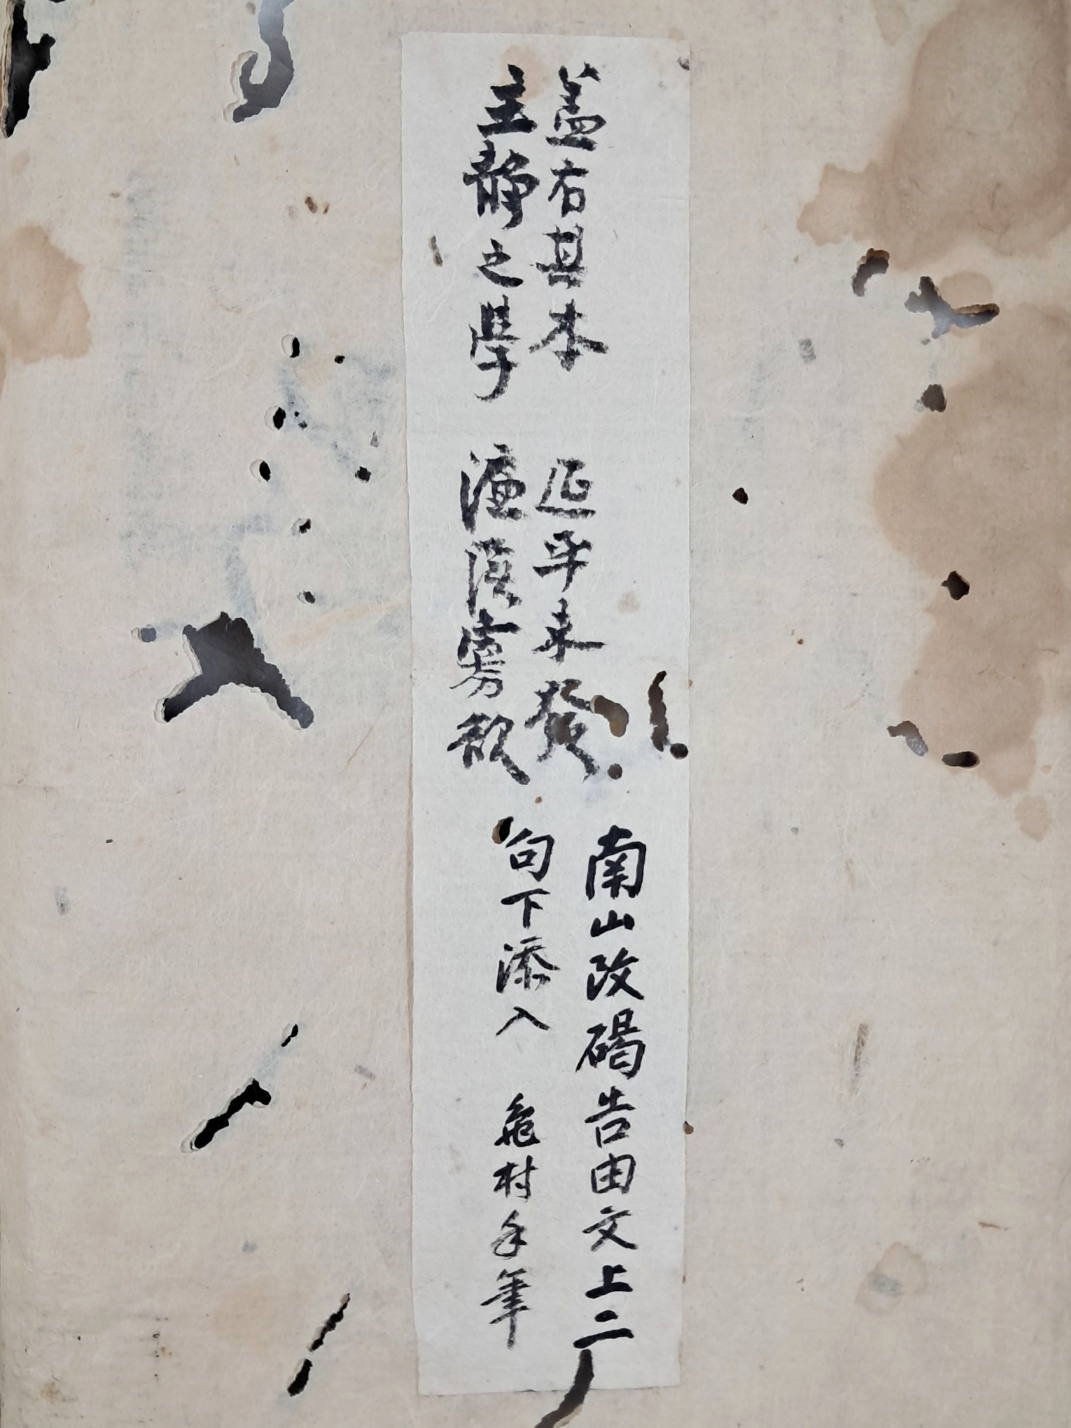 蓋右其本 延平未發
主靜之學 濂溪寡欲
南山改碣告由文上二
句下添入 龜村手筆